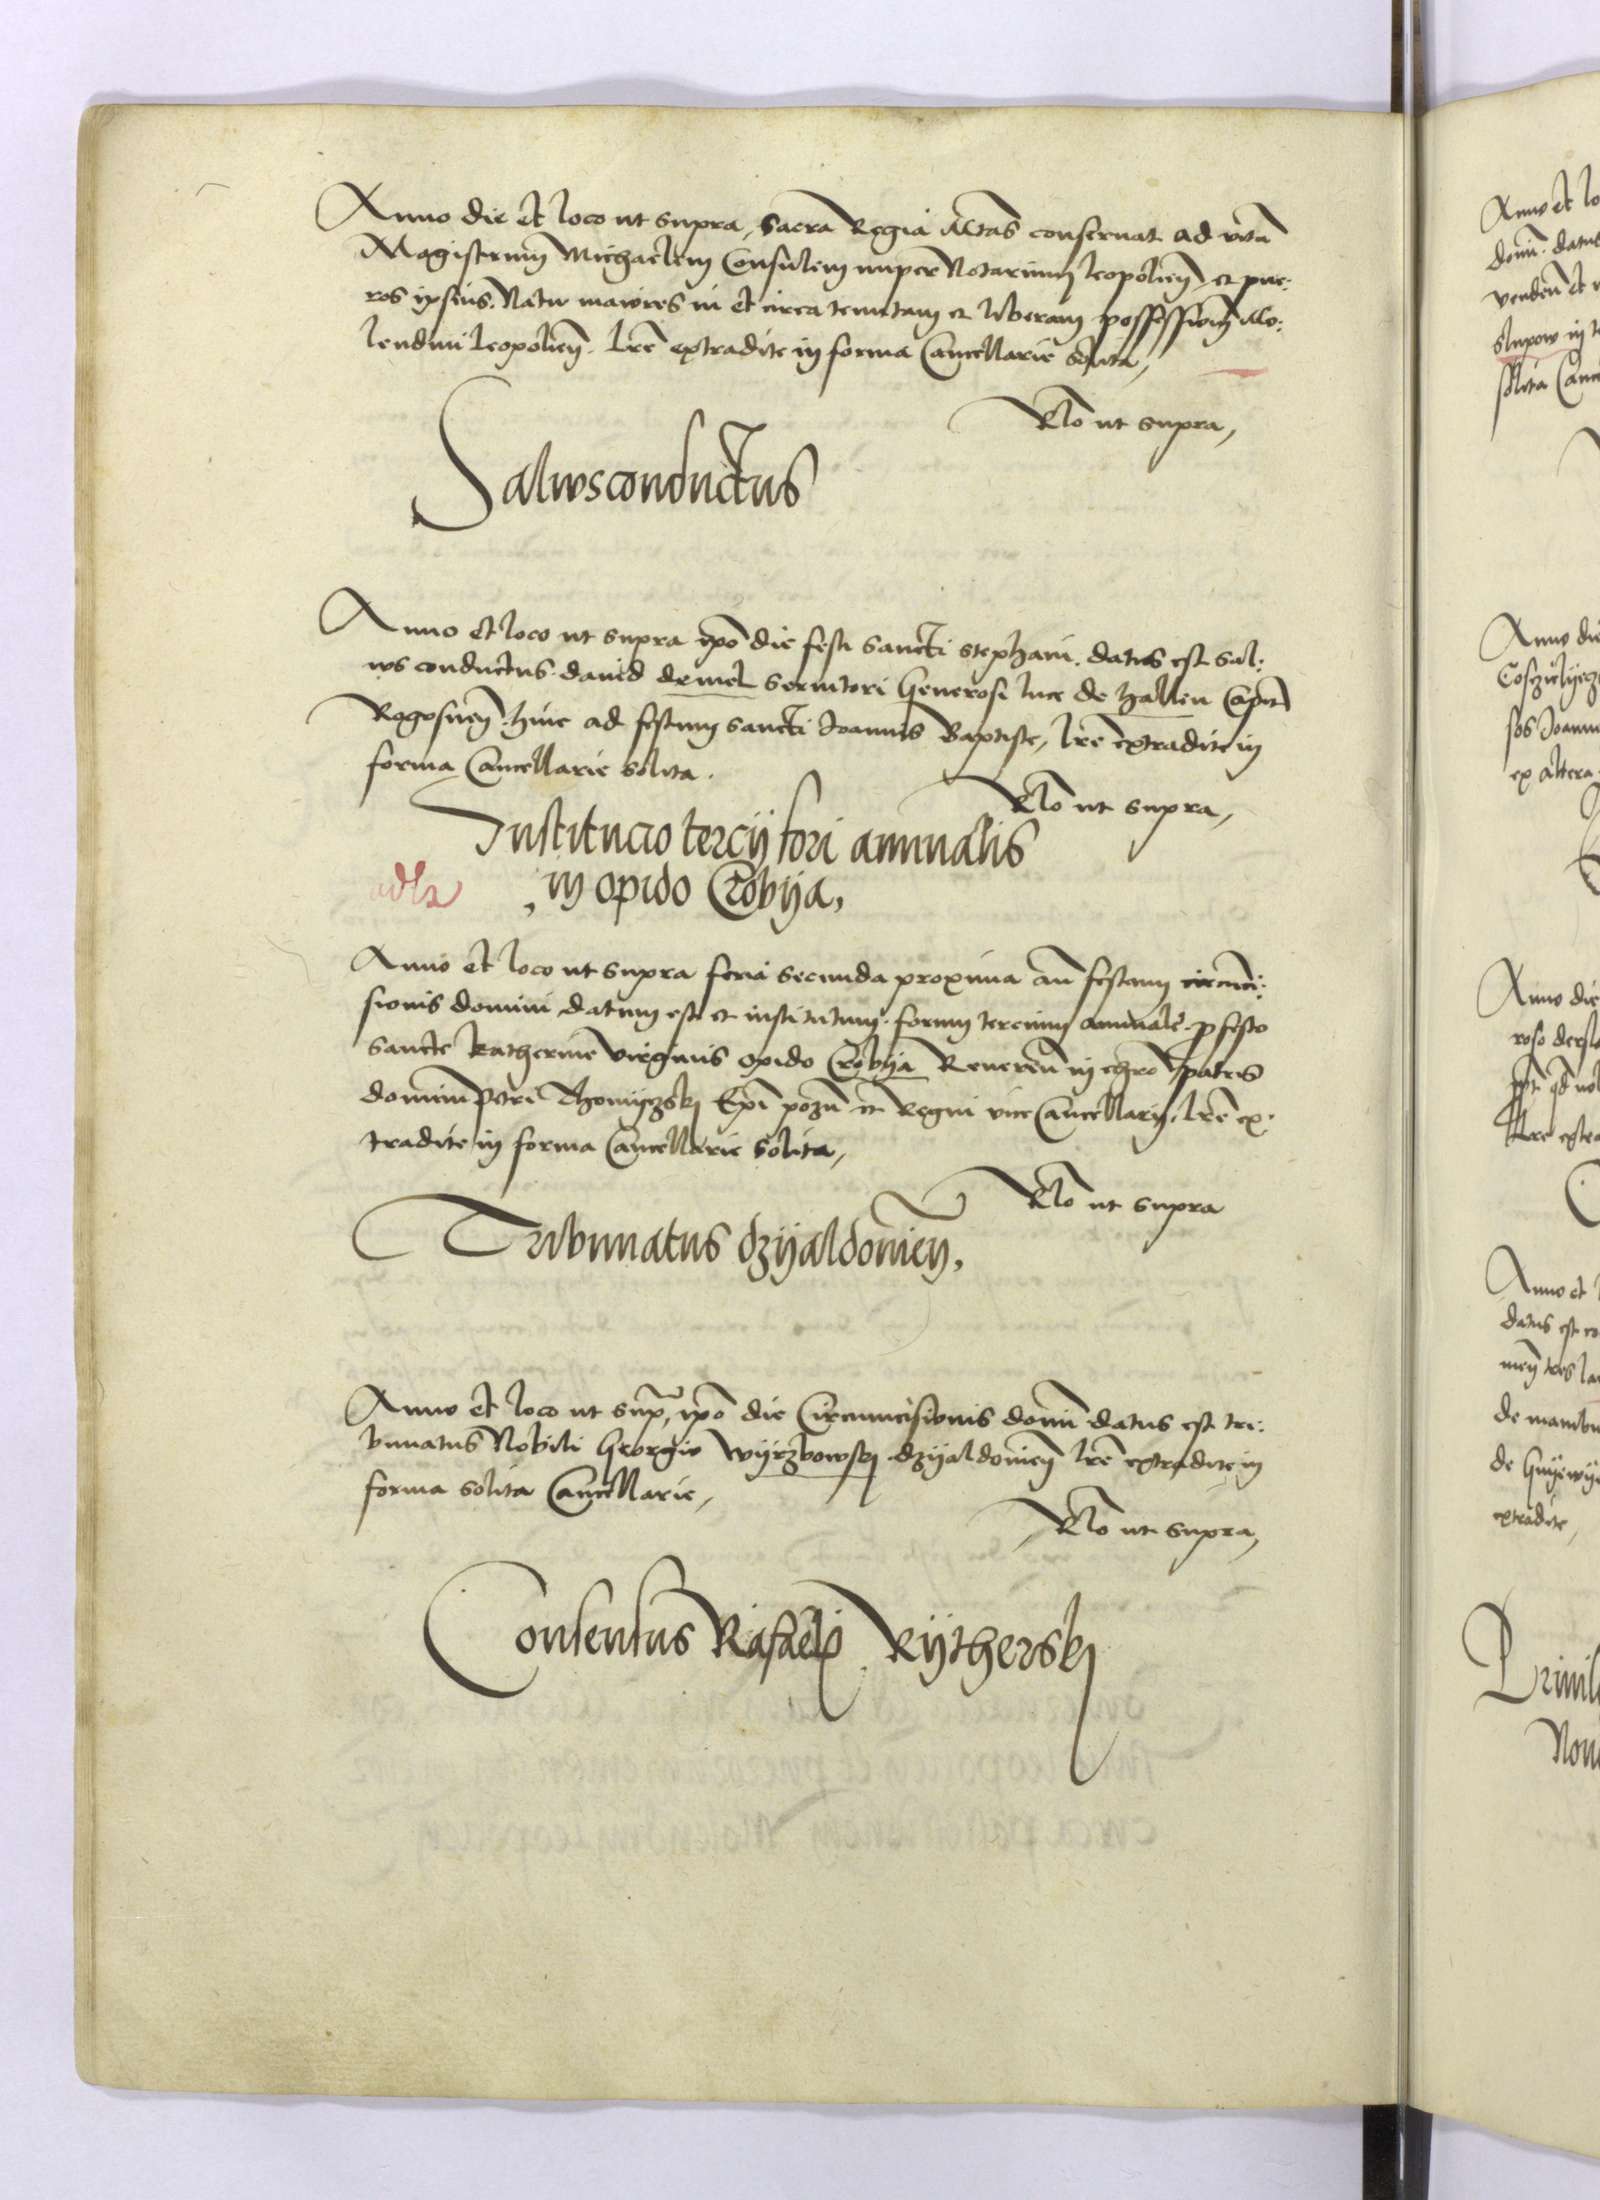 Anno die et loco ut supra, Sacra Regia Mtas conservat ad vitā
Magistrum Michaelem Consulem nuper Notarium leopolieñ et pue:
ros ipsius Natu maiores in et circa tenutam et liberam possessionē Mo:
lendini leopolieñ. lrē extradite in forma Cancellarie solita,
Rlo ut supra,
Salvusconductus
Anno et loco ut supra ipō die festi sancti stephani. datus est sal:
vus conductus david demel servitori Generosi luce de hallen Capit
Rogosneñ. hinc ad festum sancti Joannis Baptiste, lrē extradite in
forma Cancellarie solita.
Rlo ut supra,
Institucio tercij fori annualis
in opido Crobija,
Anno et loco ut supra feria secunda proxima añ festum circunci:
sionis domini datum est et institutum. forum tercium annuale. p festo
sancte katherine virginis opido Crobija Reverēn in chro patris
domini Petri Thomijczskj Epi pozñ et Regni vice Cancellarij, lrē ex:
tradite in forma Cancellarie solita,
Rlo ut supra
Tribunatus dzijaldonieñ,
Anno et loco ut sup, ipō die Circuncisionis domi datus est tri:
bunatus Nobili Georgio Wijrzbowskj dzijaldonieñ lrē extradite in
forma solita Cancellarie,
Rlo ut supra,
Consensus Rafaelis Rijtherskj